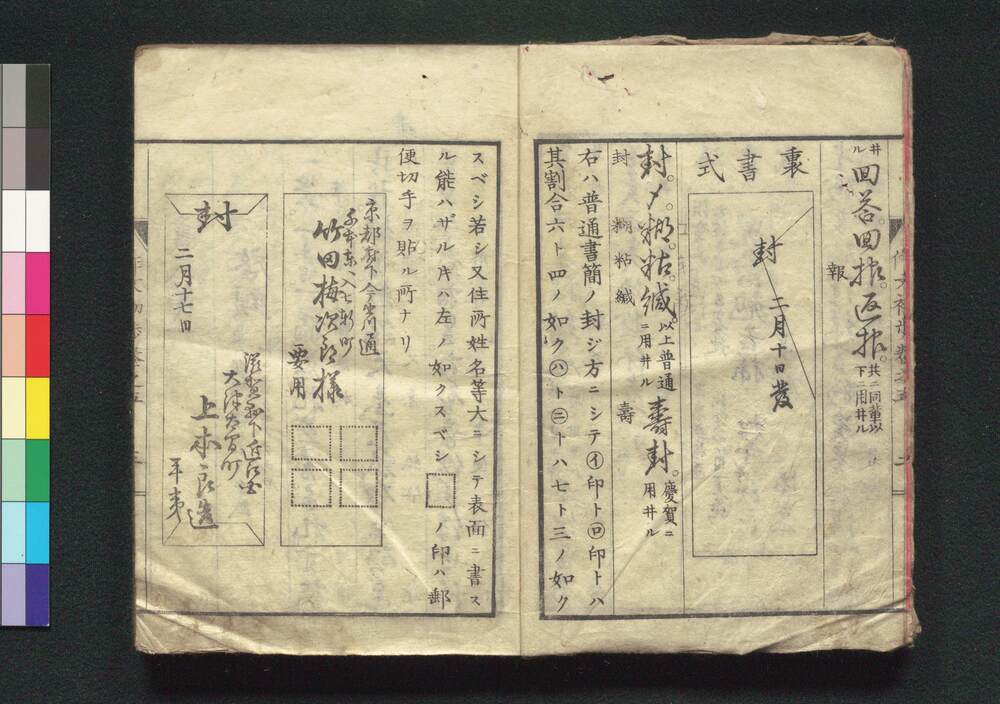 井ル
回答。回報。返報。
報
共ニ同輩以
下ニ用井ル
裏書式
封
二月十日發
封。〆。糊。粘。緘
封 糊 粘 緘
以上普通
ニ用井ル
壽封。
壽
慶賀ニ
用井ル
右ハ普通書簡ノ封ジ方ニシテ㋑印ト㋺印トハ
其割合六ト四ノ如ク㋩ト㋥トハ七ト三ノ如ク
スベシ若シ又住所姓名等大ニシテ表面ニ書ス
ル能ハザル片ハ左ノ如クスベシ
ノ印ハ郵
便切手ヲ貼ル所ナリ
京都府下今出川通
千本東入七軒町
竹田梅次郎様
要用
封
二月十七日
滋賀縣下近江国
上木良造
平事